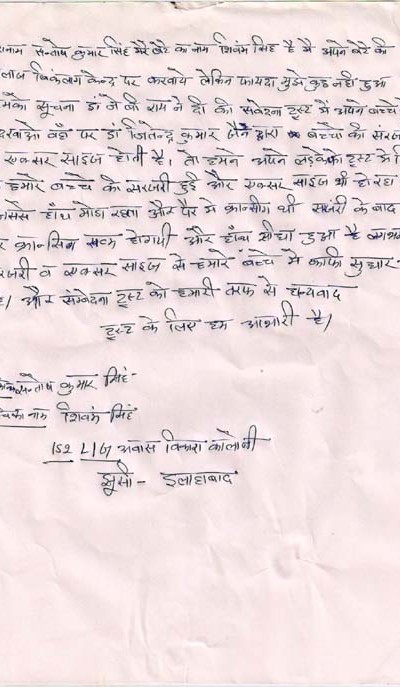 नाम सन्तोष कुमार सिंह मेरे बेटे का नाम शिवम सिंह है मै अपने बेटे की
विकलांग केन्द्र पर करवाये लेकिन फायदा मुझे कुछ नही हुआ
सूचना डा जे वी राय ने दी की संवेदना ट्रस्ट मे अपने बच्चे
दिखाओ वहाँ पर डां जितेन्द्र कुमार जैन द्वारा बच्चो की सरज
एक्सर साइज होती है। तो हमने अपने लडके को ट्रस्ट मे
हमारे बच्चे की सरजरी हुई और एक्सर साइज भी हो रहा
हाँथ मोडा रखा और पैर मे क्रासींग थी सर्जरी के बाद
क्रासिंग खत्म होगयी और हाँथ सीधा हुआ है
व एक्सर साइज से हमारे बच्चे मे काफी सुधार
है। और संम्वेदना ट्रस्ट को हमारी तरफ से धन्यवाद
ट्रस्ट के लिए हम आभारी है।
सन्तोष कुमार सिंह
नाम शिवम सिंह
152 LIG अवास विकास कालोनी
झूसी - इलाहाबाद